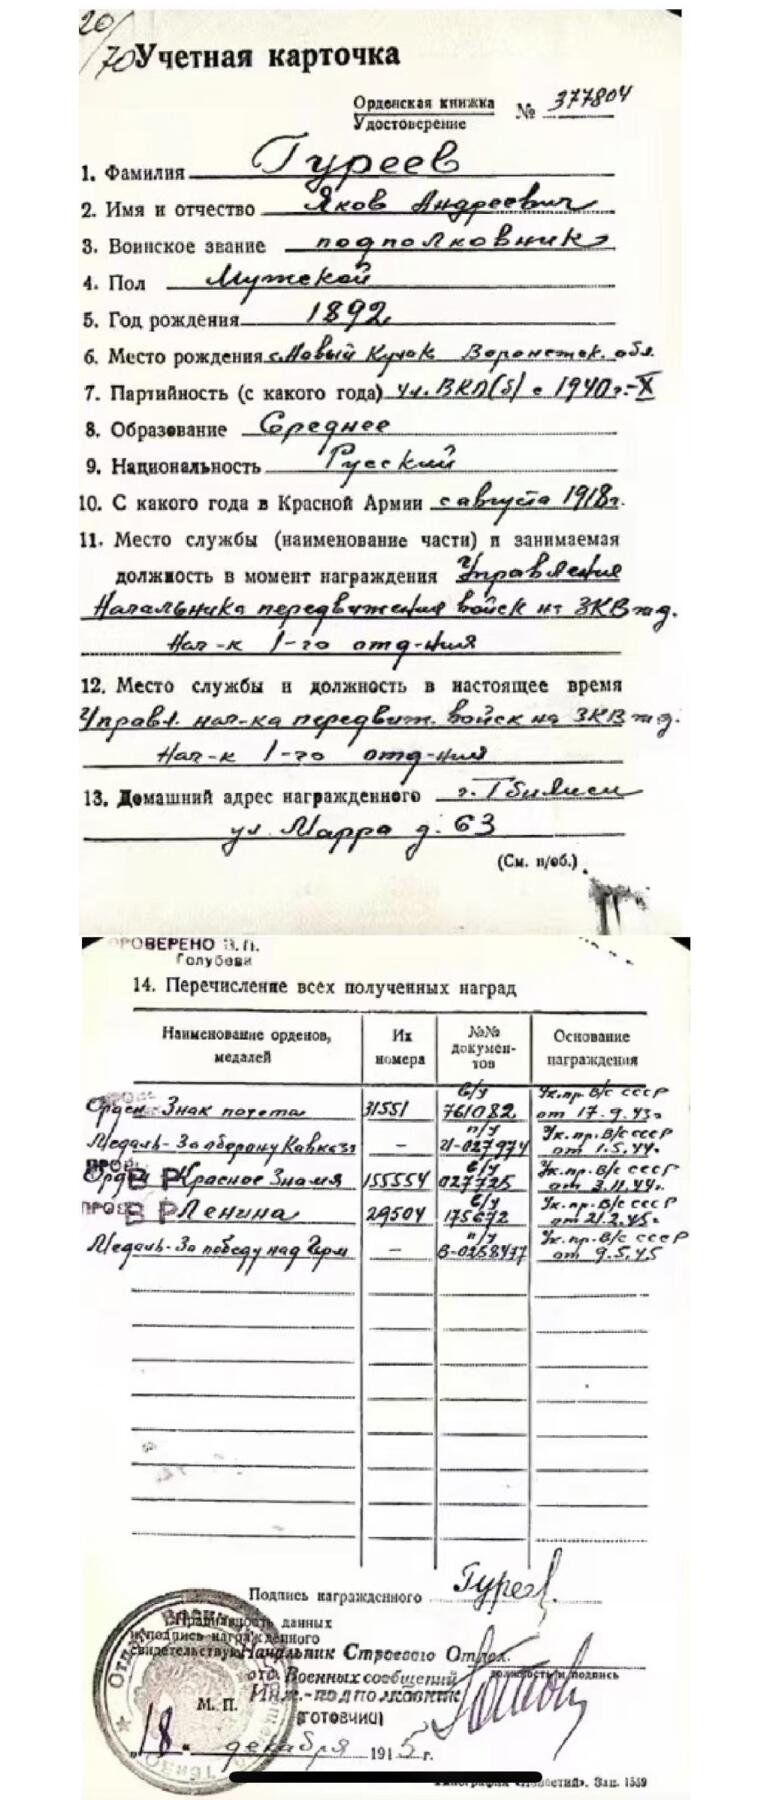 20/70
Учетная карточка
Орденская книжка № 377804
Удостоверение
1. Фамилия Гуреев
2. Имя и отчество Яков Андреевич
3. Воинское звание подполковник
4. Пол Мужской
5. Год рождения 1892
6. Место рождения с. Новый Воронежск. обл.
7. Партийность (с какого года) чл. ВКП(б) с 1940 г.-X
8. Образование Среднее
9. Национальность Русский
10. С какого года в Красной Армии с августа 1918г.
11. Место службы (наименование части) и занимаемая
должность в момент награждения Управления
Начальника передвижения войск на ЗКВ жд.
Нач-к 1-го отд-ния
12. Место службы и должность в настоящее время
Управл. нач-ка передвиж. войск на ЗКВ жд.
Нач-к 1-го отд-ния
13. Домашний адрес награжденного г. Тбилиси
ул. Марра д. 63
(См. н/об.)
ПРОВЕРЕНО В.П.
Голубева
14. Перечисление всех полученных наград
Наименование орденов, медалей Их номера №№ документов Основание награждения
Орден - Знак почета 31551 в/у 761082 Ук. пр. В/с СССР от 17.9.43г.
Медаль - За оборону Кавказа — п/у 027974 Ук. пр. В/с СССР от 1.5.44г.
Орден Красное Знамя 155554 в/у 027725 Ук. пр. В/с СССР от 3.11.44г.
В Р Ленина 29504 в/у 175672 Ук. пр. В/с СССР от 21.2.45г.
Медаль - За победу над Герм — п/у В-0258477 Ук. пр. В/с СССР от 9.5.45
Подпись награжденного Гуреев
Правильность данных
и подпись награжденного
свидетельствую Начальник Строевого Отдел.
отд. Военных сообщений
должность и подпись
М. П. Инж.-подполковник
(ГОТОВЧИЦ)
„18“ декабря 1915 г.
Типография «Известий». Зак. 1559